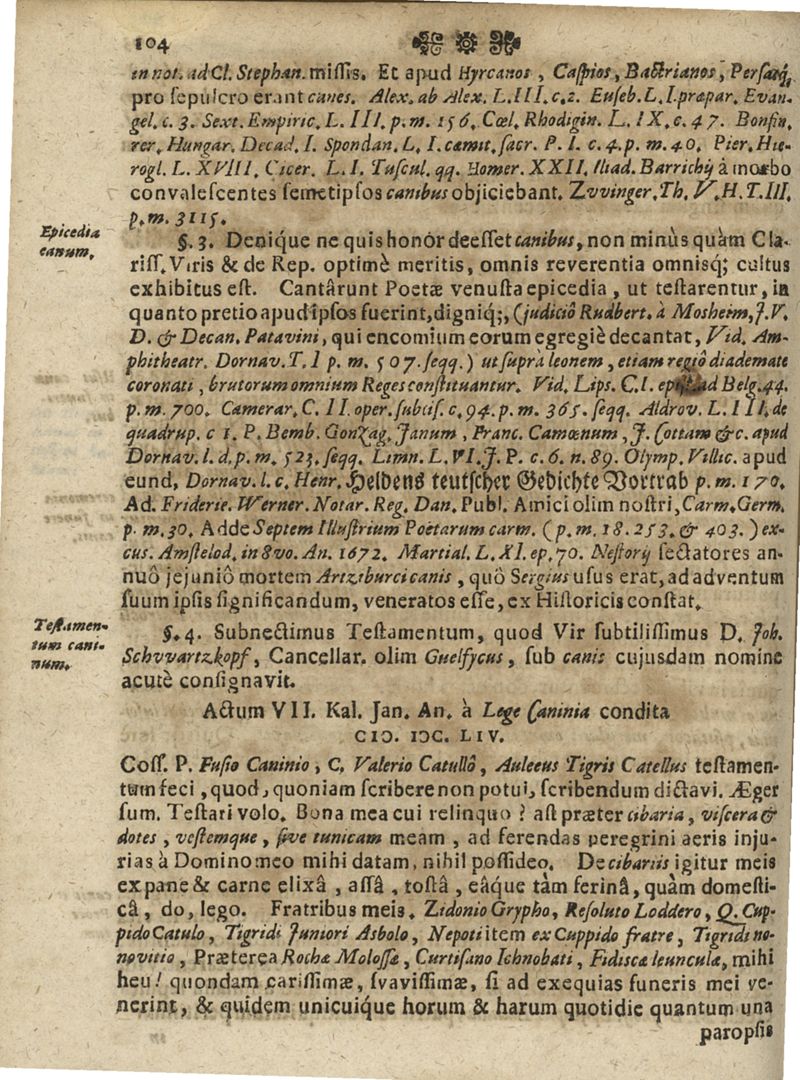 104
in not. ad Cl. Stephan. missis. Et apud Hyrcanos, Caspios, Bactrianos, Persasq;
pro sepulcro erant canes. Alex. ab Alex. L. III. c. 2. Euseb. L. I. præpar. Evan-
gel. c. 3. Sext. Empiric. L. III. p. m. 156. Cœl. Rhodigin. L. IX. c. 47. Bonfin.
rer. Hungar. Decad. I. Spondan. L. I. cœmit. sacr. P. I. c. 4. p. m. 40. Pier. Hie-
rogl. L. XVIII. Cicer. L. I. Tuscul. qq. Homer. XXII. Iliad. Barrichij à morbo
convalescentes semetipsos canibus objiciebant. Zvvinger. Th. V. H. T. III.
p. m. 3115.
Epicedia
canum.
§. 3. Denique ne quis honor deesset canibus, non minùs quàm Cla-
riss. Viris & de Rep. optimè meritis, omnis reverentia omnisq; cultus
exhibitus est. Cantârunt Poetæ venusta epicedia, ut testarentur, in
quanto pretio apud ipsos fuerint, digniq;, (judiciô Rudbert. à Mosheim, J. V.
D. & Decan. Patavini, qui encomium eorum egregiè decantat, Vid. Am-
phitheatr. Dornav. T. I p. m. 507. seqq.) ut suprà leonem, etiam regiô diademate
coronati, brutorum omnium Reges constituantur. Vid. Lips. C. I. epist. ad Belg. 44.
p. m. 700. Camerar. C. II. oper. subcis. c. 94. p. m. 365. seqq. Aldrov. L. III. de
quadrup. c 1. P. Bemb. Gonzag. Janum, Franc. Camœnum, J. Cottam &c. apud
Dornav. l. d. p. m. 523. seqq. Limn. L. VI. J. P. c. 6. n. 89. Olymp. Villic. apud
eund, Dornav. l. c. Henr. Heldens teutscher Gedichte Vortrab p. m. 170.
Ad. Frideric. Werner. Notar. Reg. Dan. Publ. Amici olim nostri, Carm. Germ.
p. m. 30. Adde Septem Illustrium Poëtarum carm. (p. m. 18. 253. & 403.) ex-
cus. Amstelod. in 8vo. An. 1672. Martial. L. XI. ep. 70. Nestorij sectatores an-
nuô jejuniô mortem Artziburci canis, quô Sergius usus erat, ad adventum
suum ipsis significandum, veneratos esse, ex Historicis constat.
Testamen-
tum cani-
num.
§. 4. Subnectimus Testamentum, quod Vir subtilissimus D. Joh.
Schvvartzkopf, Cancellar. olim Guelfycus, sub canis cujusdam nomine
acutè consignavit.
Actum VII. Kal. Jan. An. à Lege Caninia condita
CIↃ. IↃC. LIV.
Coss. P. Fusio Caninio, C. Valerio Catullô, Auleeus Tigris Catellus testamen-
tum feci, quod, quoniam scribere non potui, scribendum dictavi. Æger
sum. Testari volo. Bona mea cui relinquo? ast præter cibaria, viscera &
dotes, vestemque, sive tunicam meam, ad ferendas peregrini aeris inju-
rias à Domino meo mihi datam, nihil possideo. De cibariis igitur meis
ex pane & carne elixâ, assâ, tostâ, eâque tàm ferinâ, quàm domesti-
câ, do, lego. Fratribus meis. Zidonio Grypho, Resoluto Loddero, Q. Cup-
pido Catulo, Tigridi Juniori Asbolo, Nepoti item ex Cuppido fratre, Tigridi no-
novitio, Præterea Rochæ Molossæ, Curtisano Ichnobati, Fidiscæ leunculæ, mihi
heu! quondam carissimæ, svavissimæ, si ad exequias funeris mei ve-
nerint, & quidem unicuique horum & harum quotidie quantum una
paropsis